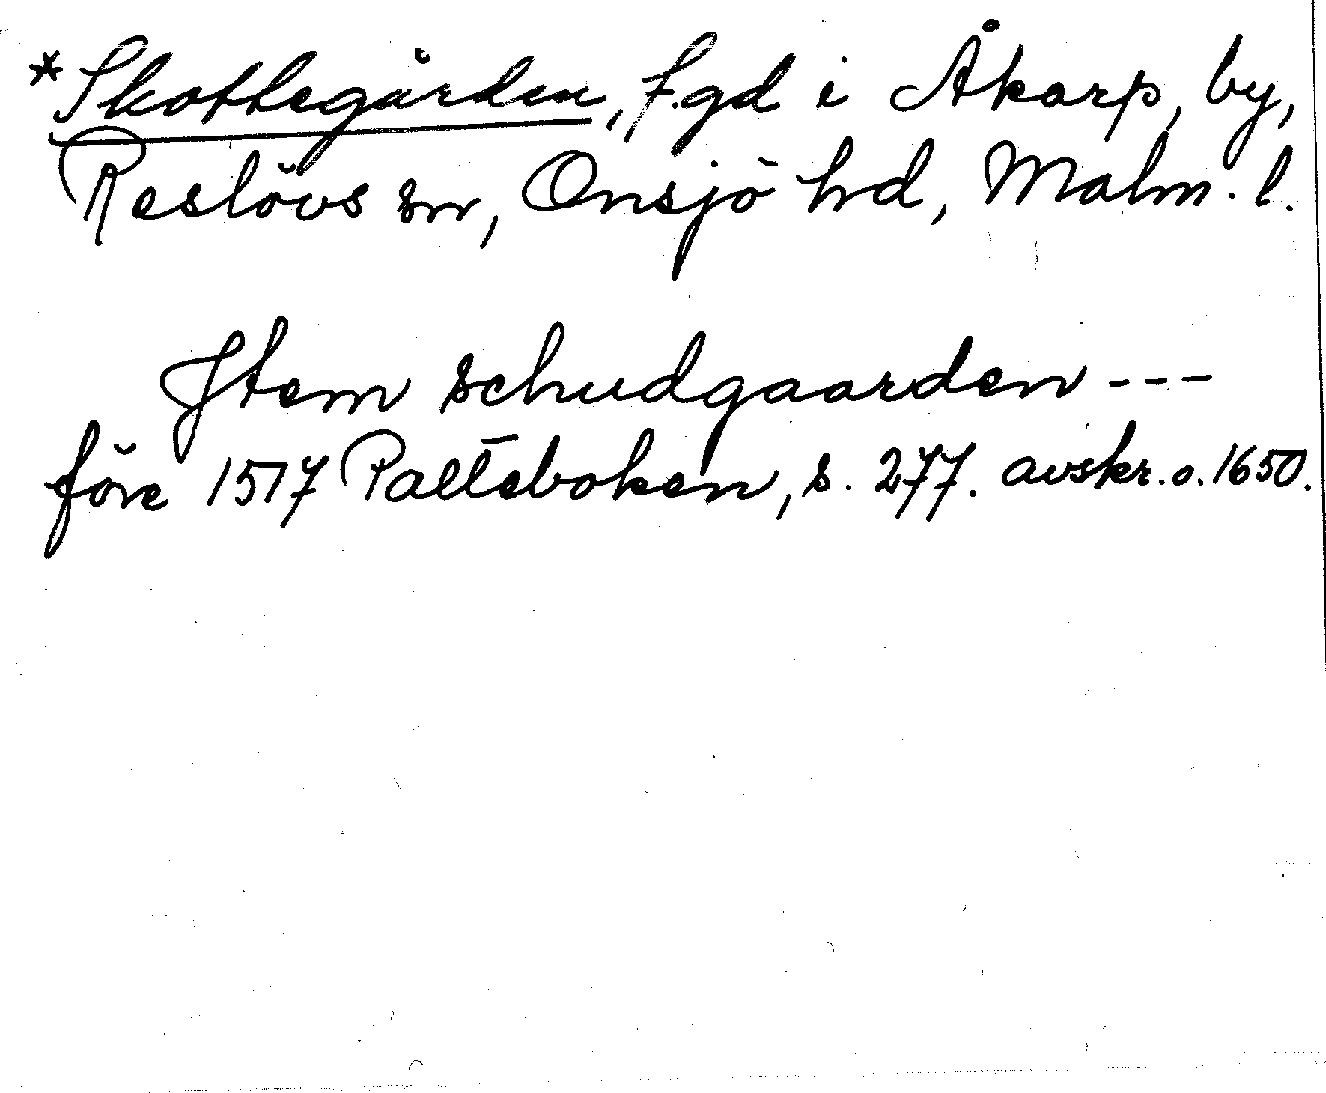 *Skottegården, f.gd i Åkarp, by,
Reslövs sn, Onsjö hd, Malm. l.
Item schudgaarden ---
före 1517 Palteboken, s. 277. avskr. o. 1650.